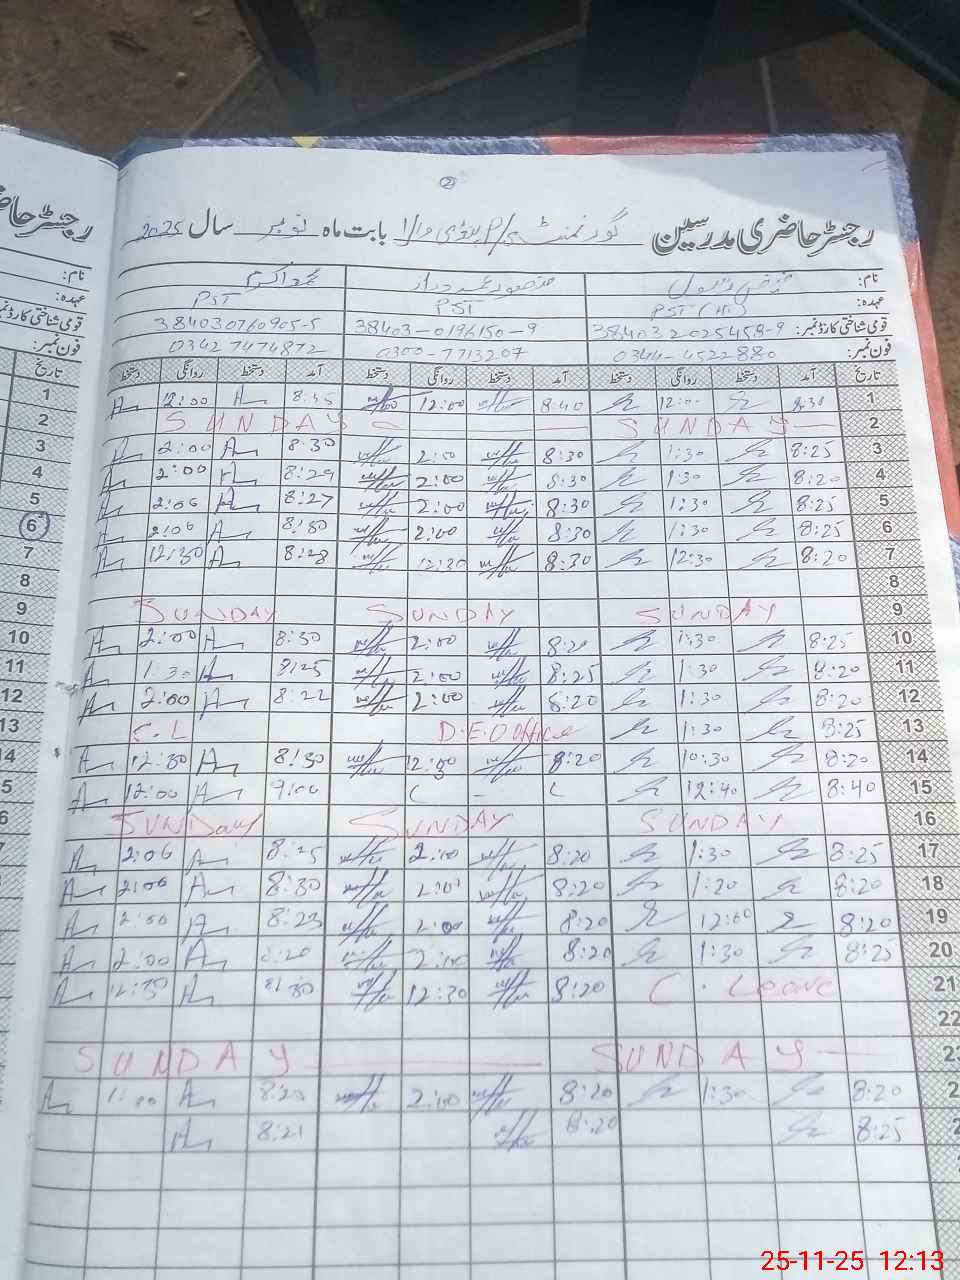 ②
رجسٹر حاضری مدرسین گورنمنٹ P/S والا بابت ماہ نومبر سال 2025
نام: محمد اکرم
عہدہ: PST (HT) PST PST
قومی شناختی کارڈ نمبر: 384032025458-9 38403-0196150-9 384030760905-5
فون نمبر: 0344-4522880 0300-7713207 03427474872
تاریخ آمد دستخط روانگی دستخط آمد دستخط روانگی دستخط آمد دستخط روانگی دستخط تاریخ
1 8:30 12:00 8:40 12:00 8:45 12:00 1
2 SUNDAY SUNDAY 2
3 8:25 1:30 8:30 2:00 8:30 2:00 3
4 8:20 1:30 8:30 2:00 8:29 2:00 4
5 8:25 1:30 8:30 2:00 8:27 2:00 5
6 8:25 1:30 8:30 2:00 8:30 2:00 6
7 8:20 12:30 8:30 12:30 8:28 12:30 7
8 8
9 SUNDAY SUNDAY SUNDAY 9
10 8:25 1:30 8:20 2:00 8:30 2:00 10
11 8:20 1:30 8:25 2:00 8:25 1:30 11
12 8:20 1:30 8:20 2:00 8:22 2:00 12
13 8:25 1:30 D.E.O Office C.L 13
14 8:20 10:30 8:20 12:00 8:30 12:30 14
15 8:40 12:40 9:00 12:00 5
16 SUNDAY SUNDAY SUNDAY 6
17 8:25 1:30 8:20 2:00 8:25 2:00
18 8:20 1:20 8:20 2:00 8:30 2:00
19 8:20 12:00 8:20 2:00 8:23 2:00
20 8:25 1:30 8:20 2:00 8:20 2:00
21 C. Leave 8:20 12:30 8:30 12:30
22
23 SUNDAY SUNDAY
2 8:20 1:30 8:20 2:00 8:20 1:00
8:25 8:20 8:21
25-11-25 12:13